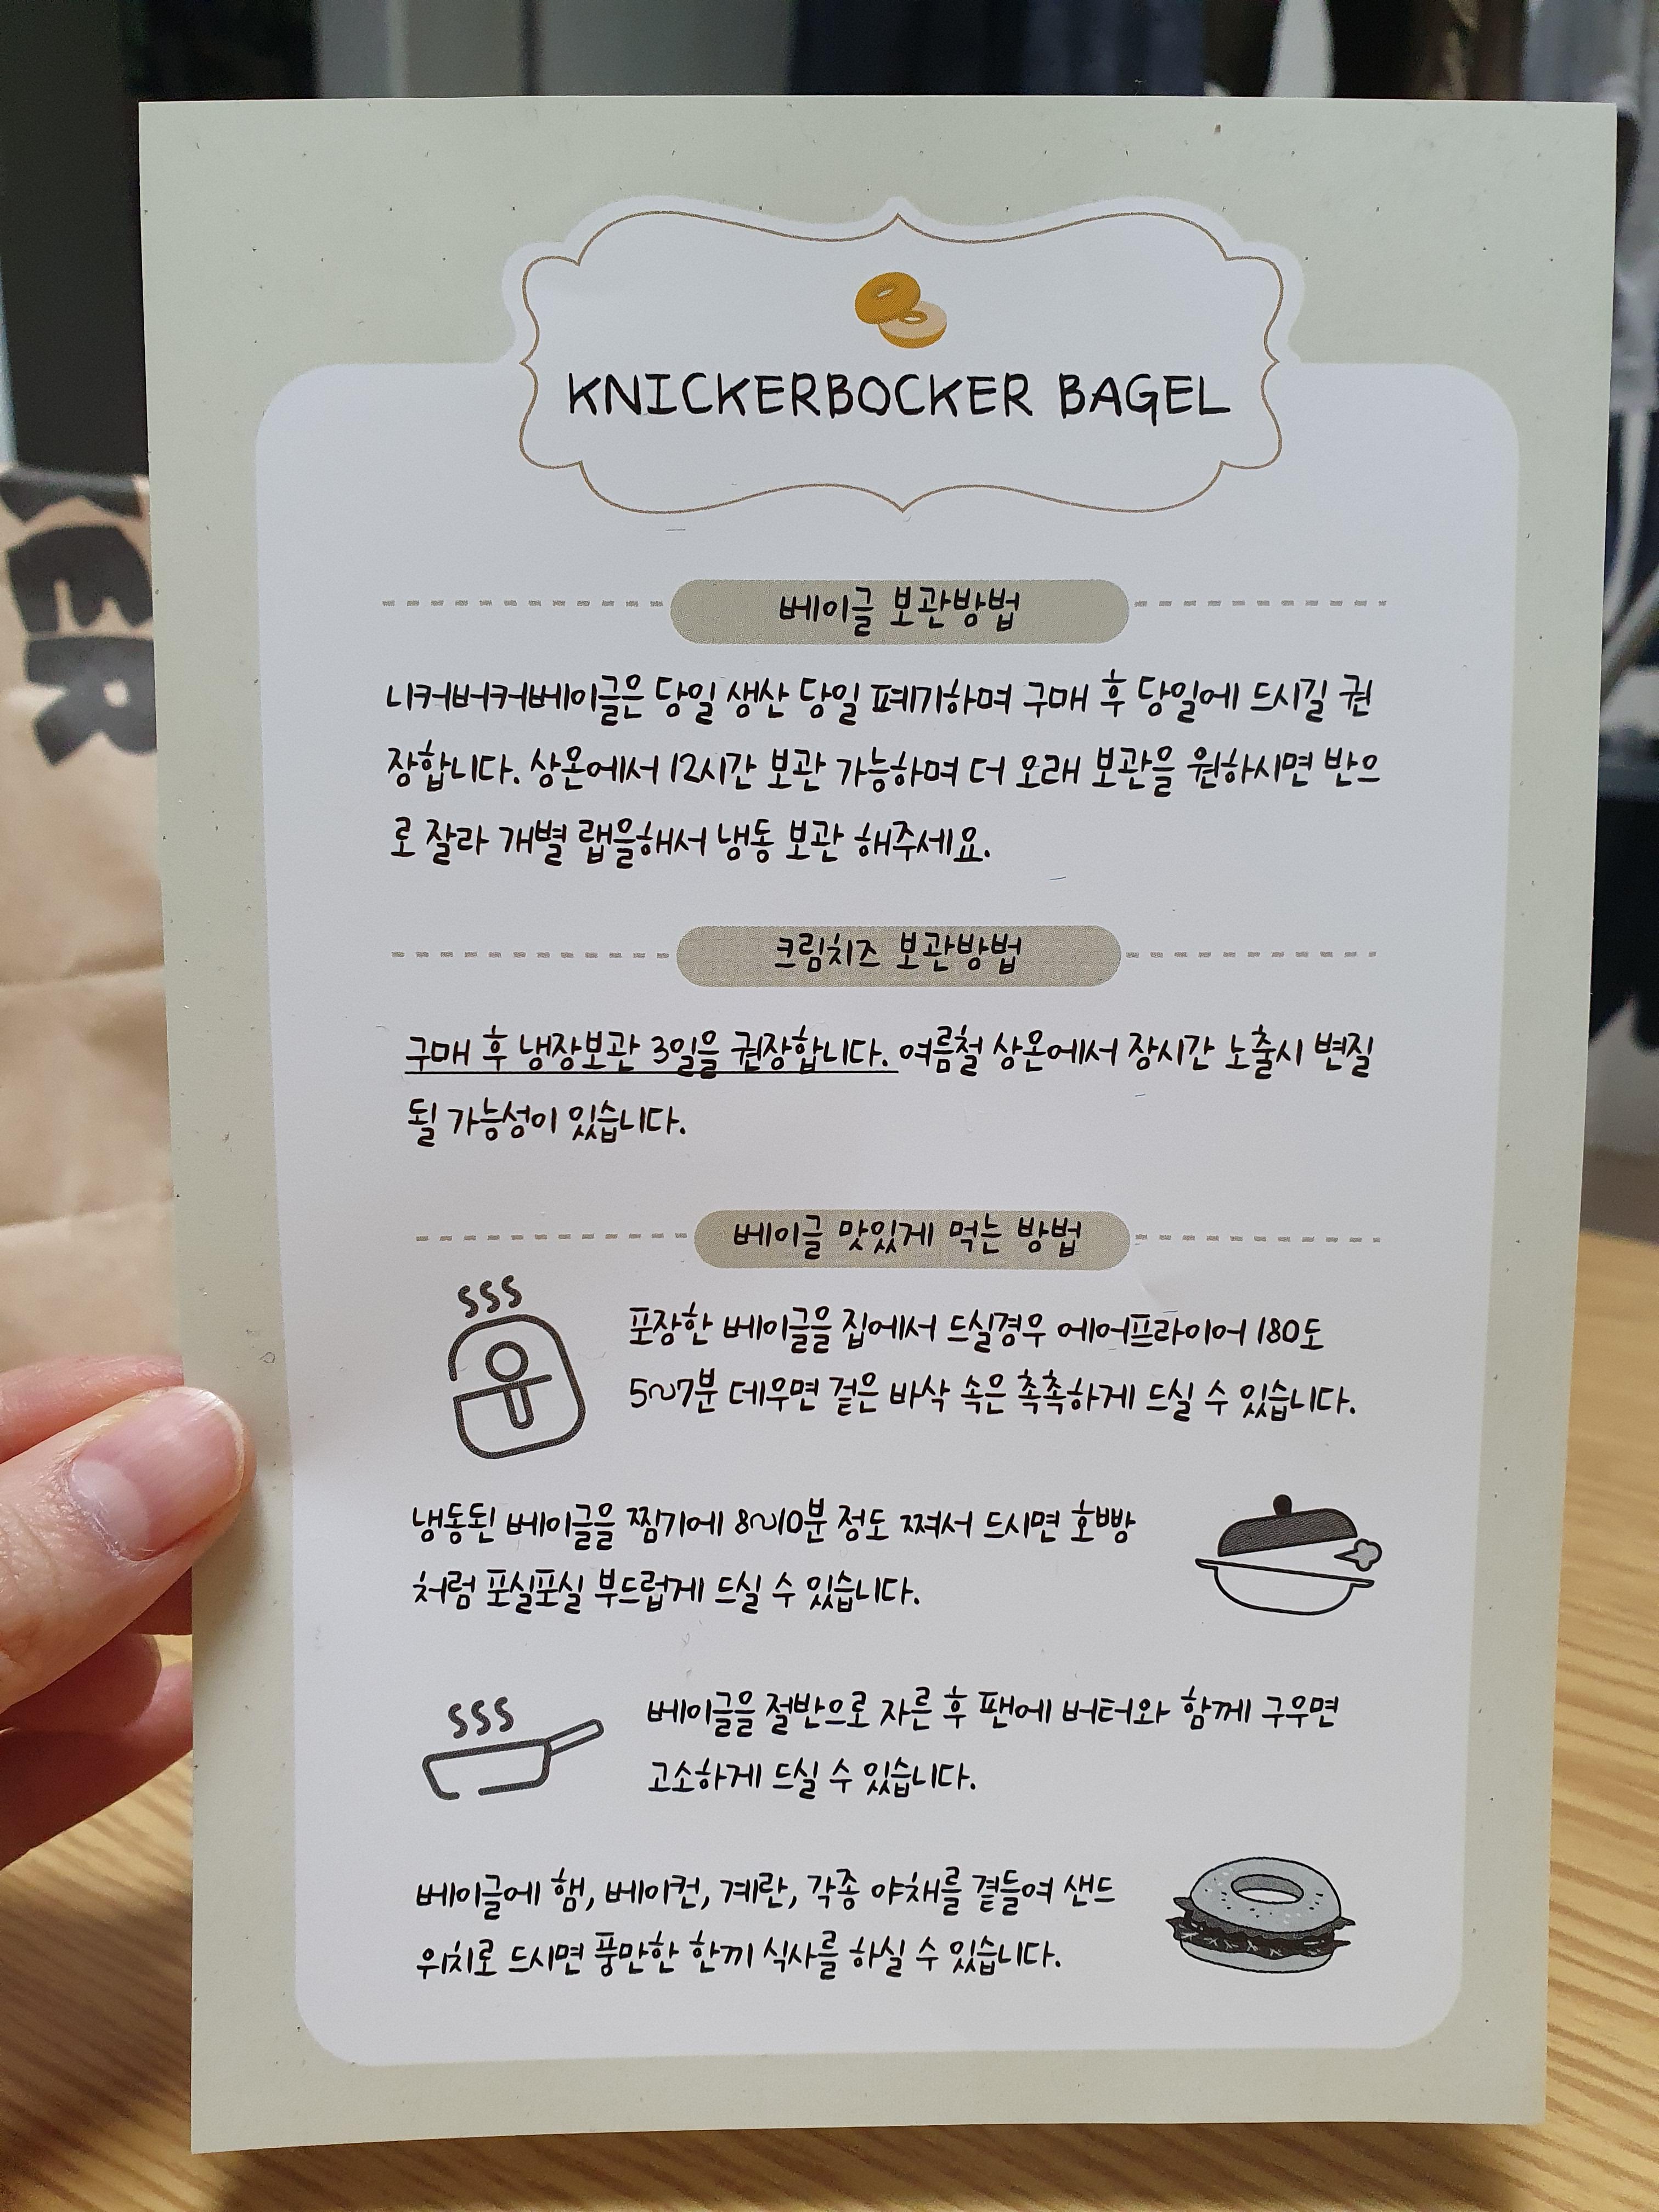 KNICKERBOCKER BAGEL
베이글 보관방법
니커버커베이글은 당일 생산 당일 폐기하며 구매 후 당일에 드시길 권
장합니다. 상온에서 12시간 보관 가능하며 더 오래 보관을 원하시면 반으
로 잘라 개별 랩을해서 냉동 보관 해주세요.
크림치즈 보관방법
구매 후 냉장보관 3일을 권장합니다. 여름철 상온에서 장시간 노출시 변질
될 가능성이 있습니다.
베이글 맛있게 먹는 방법
SSS
포장한 베이글을 집에서 드실경우 에어프라이어 180도
5~7분 데우면 겉은 바삭 속은 촉촉하게 드실 수 있습니다.
냉동된 베이글을 찜기에 8~10분 정도 쪄서 드시면 호빵
처럼 포실포실 부드럽게 드실 수 있습니다.
SSS
베이글을 절반으로 자른 후 팬에 버터와 함께 구우면
고소하게 드실 수 있습니다.
베이글에 햄, 베이컨, 계란, 각종 야채를 곁들여 샌드
위치로 드시면 풍만한 한끼 식사를 하실 수 있습니다.